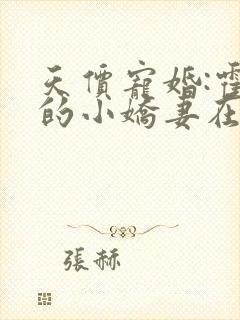 天價寵婚:霍
的小嬌妻在
張赫